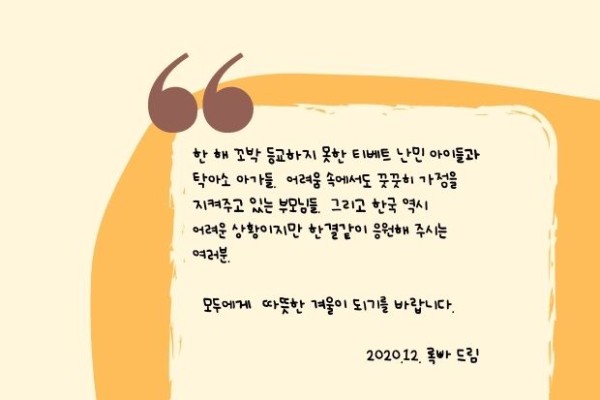 한 해 꼬박 등교하지 못한 티베트 난민 아이들과
탁아소 아가들. 어려움 속에서도 꿋꿋히 가정을
지켜주고 있는 부모님들. 그리고 한국 역시
어려운 상황이지만 한결같이 응원해 주시는
여러분.
모두에게 따뜻한 겨울이 되기를 바랍니다.
2020.12. 록빠 드림